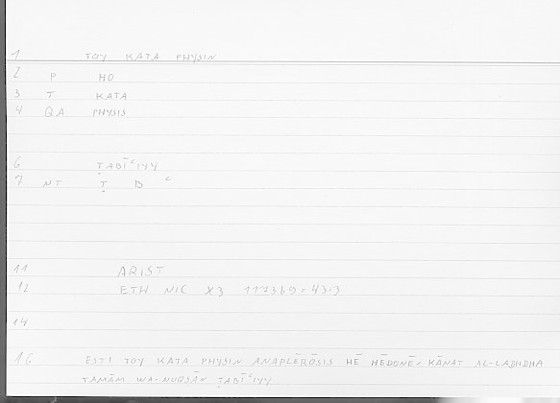 1 TOY KATA PHYSIN
2 P HO
3 T KATA
4 QA PHYSIS
6 ṬABĪʿIYY
7 NT Ṭ B ʿ
11 ARIST
12 ETH NIC X3
14
16 ESTI TOY KATA PHYSIN ANAPLĒRŌSIS HĒ HĒDONĒ = KĀNAT AL-LADHDHA
TAMĀM WA- ṬABĪʿIYY